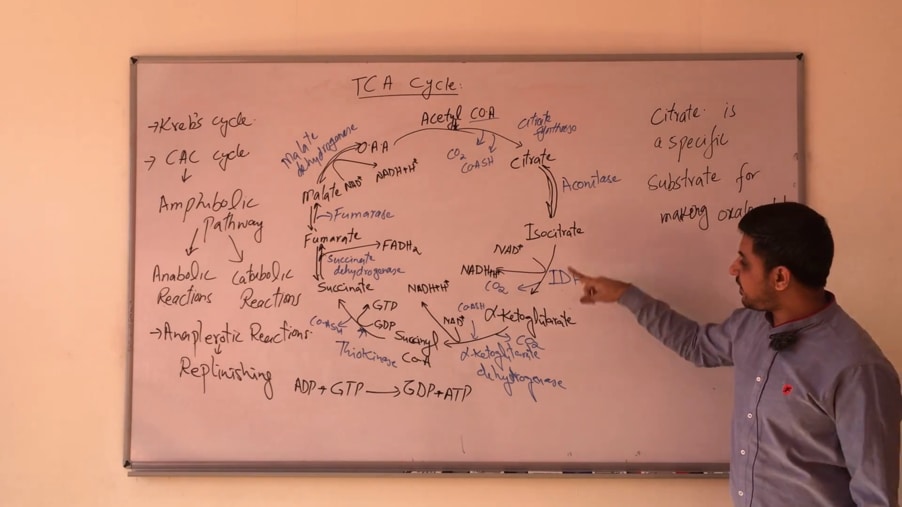 TCA Cycle:
→ Kreb's cycle
→ CAC cycle
Amphibolic
Pathway
Anabolic
Reactions
Catabolic
Reactions
→ Anaplerotic Reactions
Replinishing
Acetyl CO.A
CO2
COASH
Citrate
synthase
Citrate
Aconilase
Isocitrate
NAD+
NADH+H+
CO2
α-ketoglutarate
COASH
NAD+
NADH+H+
CO2
α-ketoglutarate
dehydrogenase
Succinyl
CoA
GTP
GDP
COASH
Thiokinase
Succinate
Succinate
dehydrogenase
FADH2
Fumarate
Fumarase
Malate
NAD+
NADH+H+
Malate
dehydrogenase
O.A.A
ADP + GTP → GDP + ATP
Citrate is
a specific
Substrate for
making